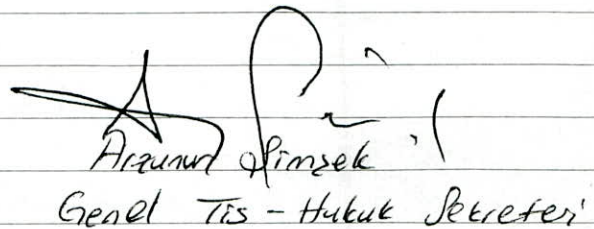 Arzunur Şimşek
Genel Tis - Hukuk Sekreteri